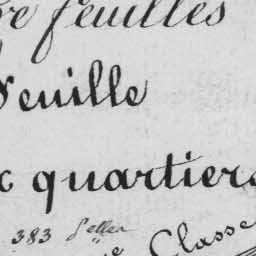 feuilles
Feuille
quartiers
383
Classe